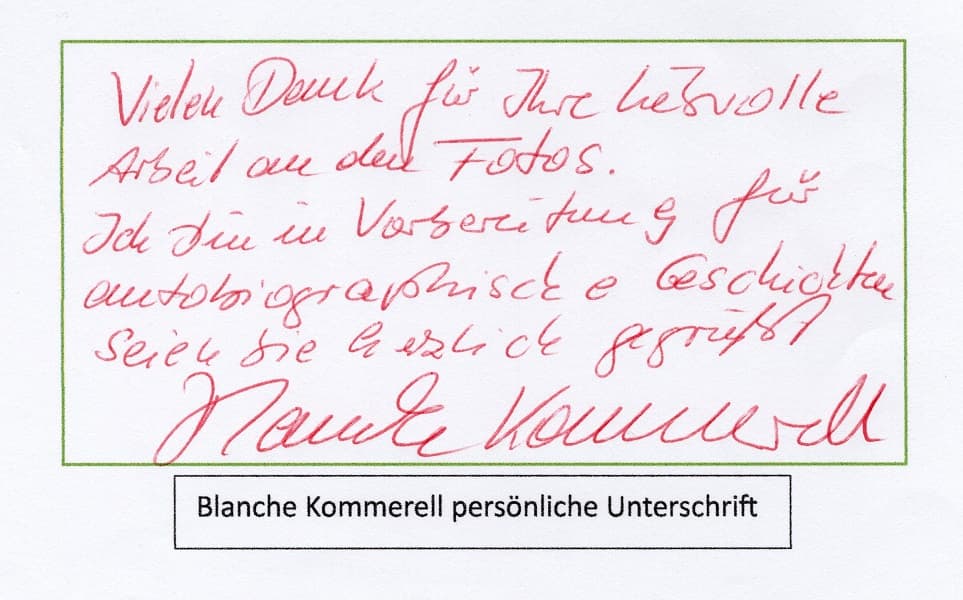 Vielen Dank für Ihre liebevolle
Arbeit an den Fotos.
Ich bin in Vorbereitung für
autobiographische Geschichten
Seien Sie herzlich gegrüßt
Blanche Kommerell
Blanche Kommerell persönliche Unterschrift